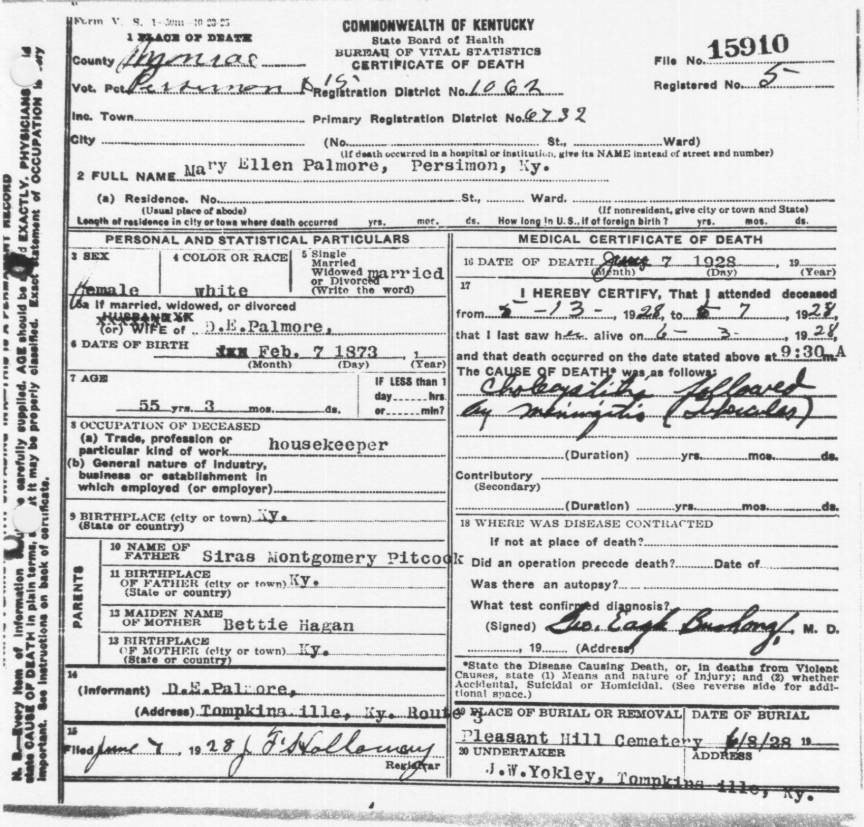 Form V. S. 1-
COMMONWEALTH OF KENTUCKY
State Board of Health
BUREAU OF VITAL STATISTICS
CERTIFICATE OF DEATH
File No. 15910
Registered No. 5
1 PLACE OF DEATH
County Monroe
Vot. Pct. Persimon
Registration District No. 1062
Inc. Town
Primary Registration District No. 6732
City (No. St., Ward)
(If death occurred in a hospital or institution, give its NAME instead of street and number)
2 FULL NAME Mary Ellen Palmore, Persimon, Ky.
(a) Residence. No. St., Ward.
(Usual place of abode) (If nonresident, give city or town and State)
Length of residence in city or town where death occurred yrs. mos. ds. How long in U.S., if of foreign birth? yrs. mos. ds.
PERSONAL AND STATISTICAL PARTICULARS
3 SEX
Female
4 COLOR OR RACE
white
5 Single
Married
Widowed
or Divorced
(Write the word)
married
5a If married, widowed, or divorced
HUSBAND of
(or) WIFE of D.E.Palmore,
6 DATE OF BIRTH Feb. 7 1873, 1
(Month) (Day) (Year)
7 AGE
55 yrs. 3 mos. ds.
IF LESS than 1
day hrs.
or min?
8 OCCUPATION OF DECEASED
(a) Trade, profession or
particular kind of work housekeeper
(b) General nature of industry,
business or establishment in
which employed (or employer)
9 BIRTHPLACE (city or town) Ky.
(State or country)
PARENTS
10 NAME OF
FATHER Siras Montgomery Pitcock
11 BIRTHPLACE
OF FATHER (city or town) Ky.
(State or country)
12 MAIDEN NAME
OF MOTHER Bettie Hagan
13 BIRTHPLACE
OF MOTHER (city or town) Ky.
(State or country)
14
(Informant) D.E.Palmore,
(Address) Tompkins ille, Ky. Route 3
15
Filed June 7, 1928 J F Holloway
Registrar
MEDICAL CERTIFICATE OF DEATH
16 DATE OF DEATH June 7 1928, 19
(Month) (Day) (Year)
17
I HEREBY CERTIFY, That I attended deceased
from 5-13-, 1928, to 6 7, 1928,
that I last saw her alive on 6- 3-, 1928,
and that death occurred on the date stated above at 9:30 m.A
The CAUSE OF DEATH* was as follows:
followed
by meningitis
(Duration) yrs. mos. ds.
Contributory
(Secondary)
(Duration) yrs. mos. ds.
18 WHERE WAS DISEASE CONTRACTED
If not at place of death?
Did an operation precede death? Date of
Was there an autopsy?
What test confirmed diagnosis?
(Signed) Geo. Bushong, M. D.
, 19 (Address)
*State the Disease Causing Death, or, in deaths from Violent
Causes, state (1) Means and nature of Injury; and (2) whether
Accidental, Suicidal or Homicidal. (See reverse side for addi-
tional space.)
19 PLACE OF BURIAL OR REMOVAL
Pleasant Hill Cemetery
DATE OF BURIAL
6/8/28 19
20 UNDERTAKER
ADDRESS
J.W.Yokley, Tompkins ille, Ky.
N. B.—Every item of information carefully supplied. AGE should be EXACTLY. PHYSICIANS
state CAUSE OF DEATH in plain terms, it may be properly classified. Exact statement of OCCUPATION is
important. See instructions on back of certificate.